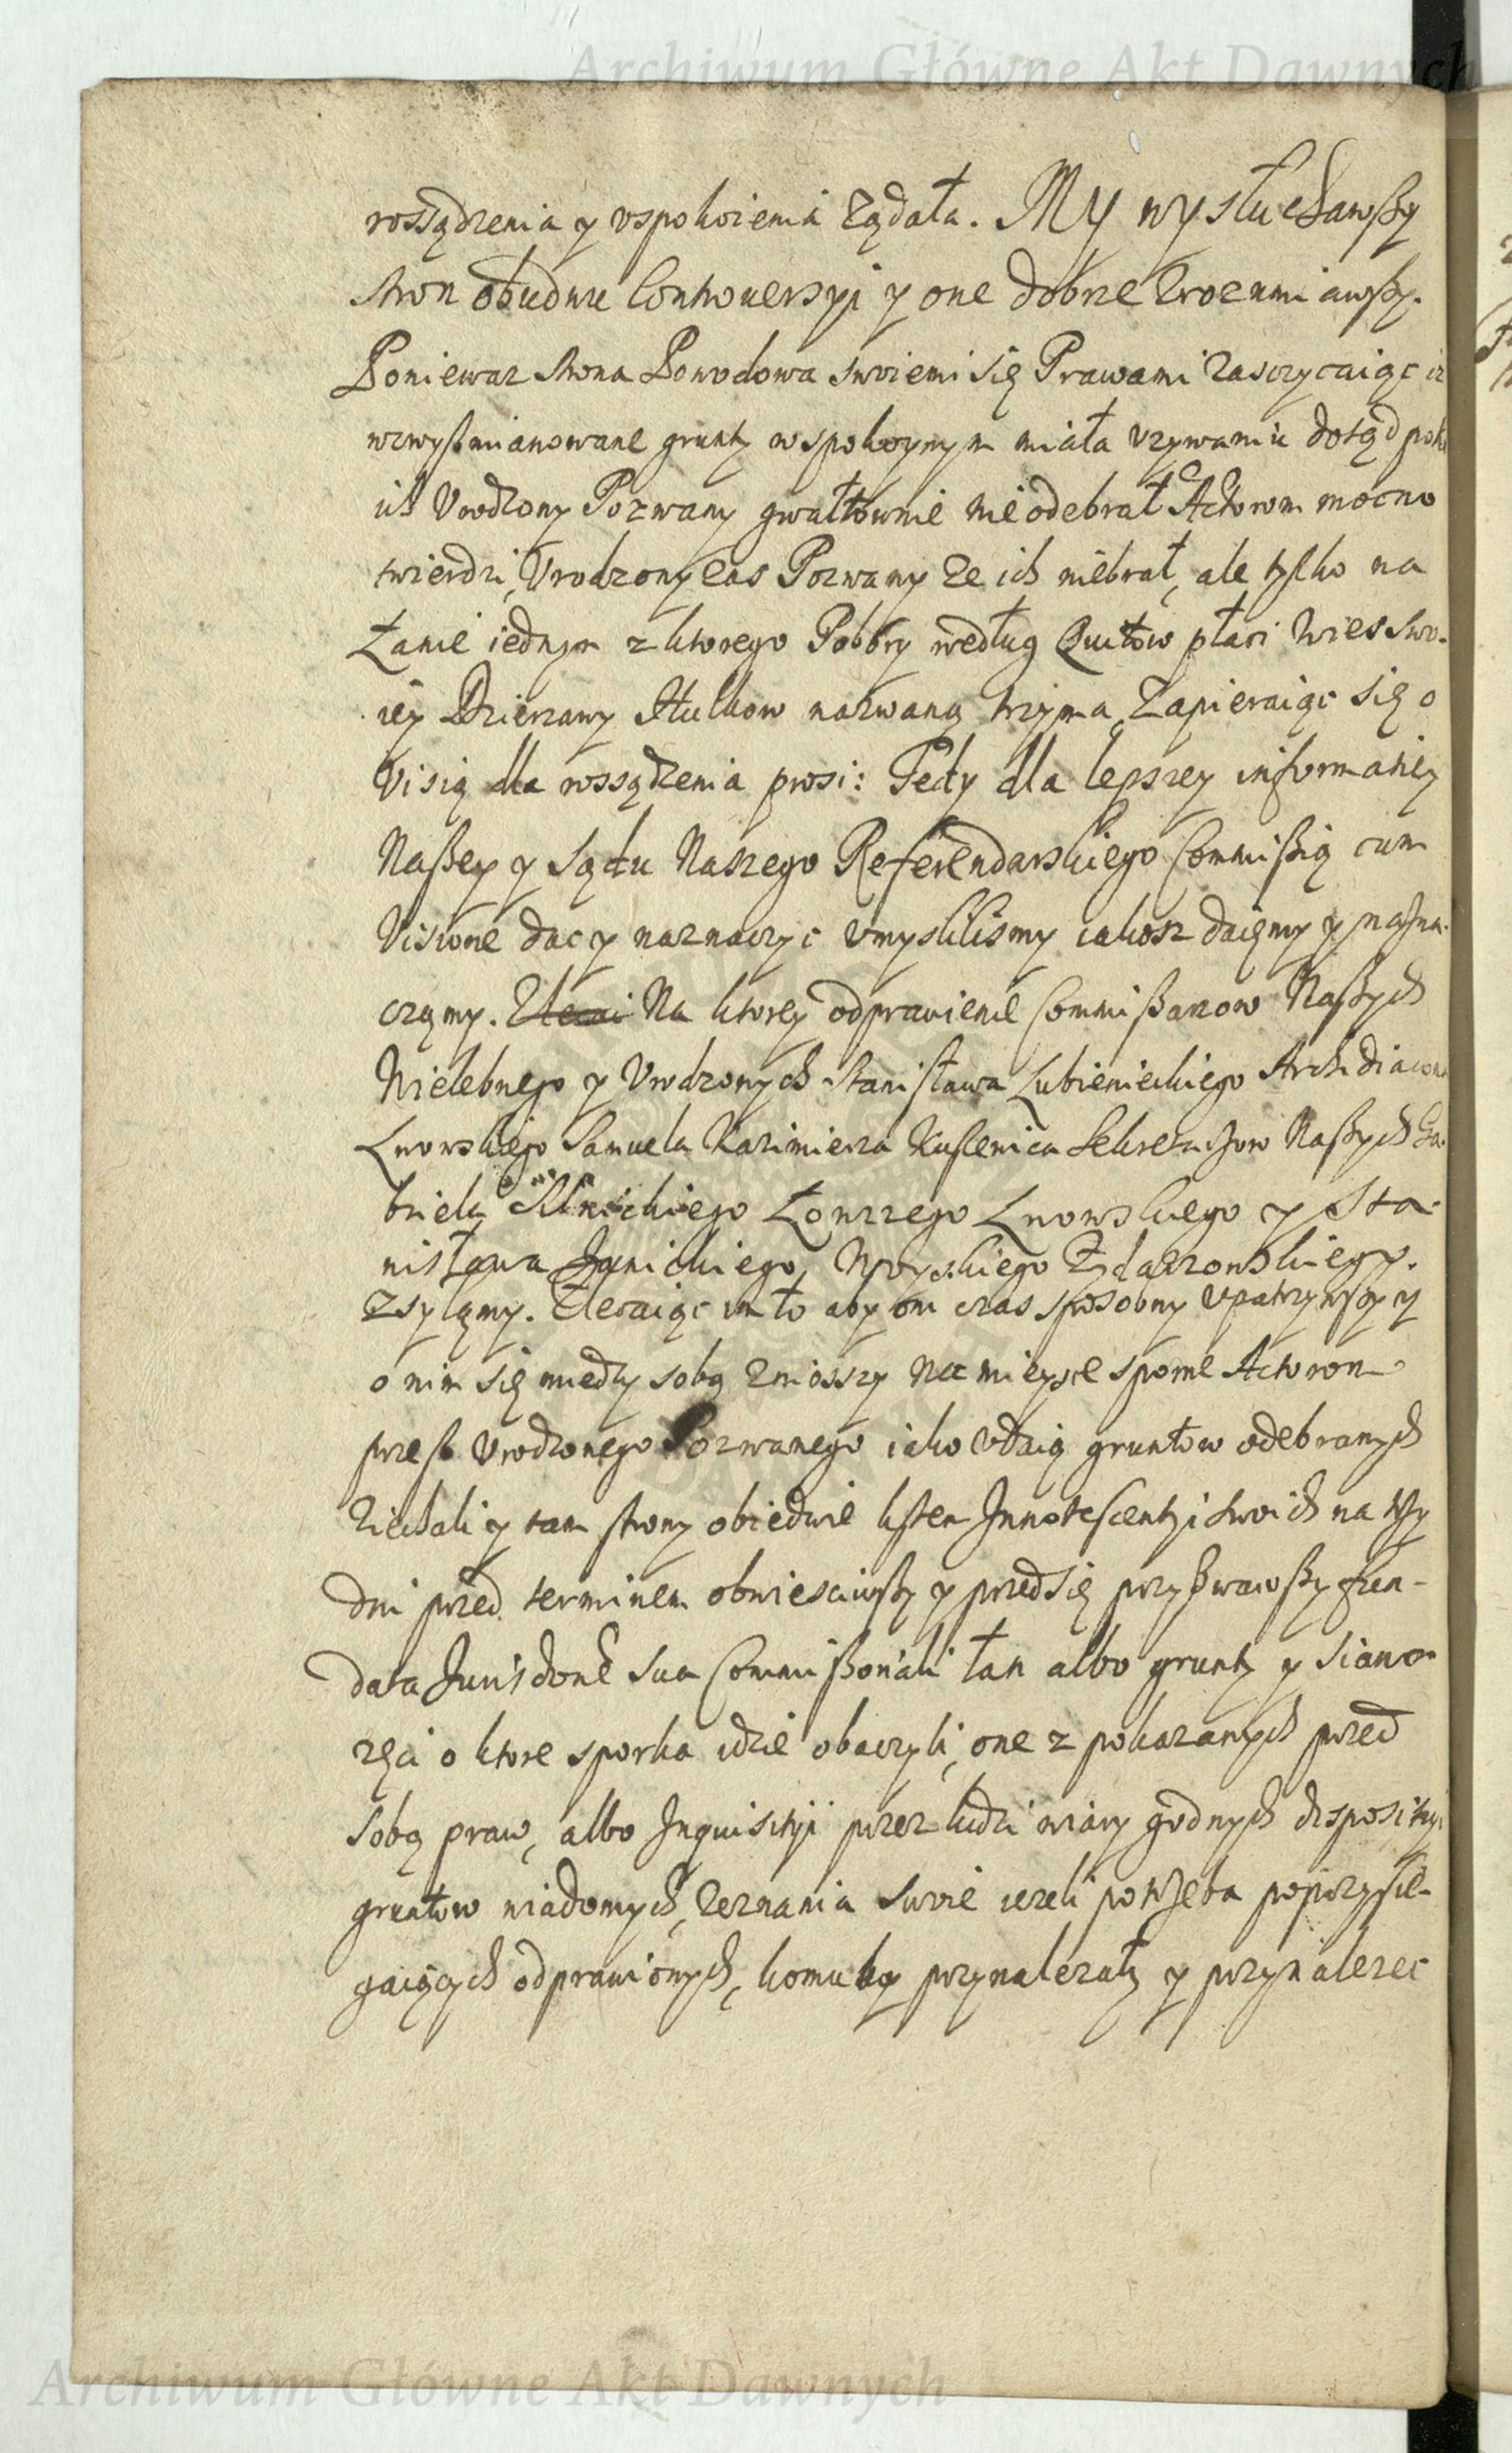 Archiwum Główne Akt Dawnych
rossądzenia y uspokoienia żądała. My wysłuchawszy
stron obudwu Controuersyi y one dobrze zrozumiawszy.
Poniewaz strona Powodowa swoiemi się Prawami zasczycaiąc iz
wzwyszmianowane grunty w spokoynym miała uzywaniu dotąd poki
ich Urodzony Pozwany gwałtownie nie odebrał Actorom mocno
twierdzi, Urodzony zas Pozwany ze ich niebrał, ale tylko na
Łanie iednym z ktorego Pobory według Quitow płaci wies swo-
iey Dzierzawy Hulkow nazwaną trzyma, Zapieraiąc się o
Visią dla rossądzenia prosi: Tedy dla lepszey informatiey
Naszey y Sądu Naszego Referendarskiego Commissią cum
Visione dac y naznaczyc umyslilismy iakosz daięmy y nazna-
czymy. Na ktorey odprawienie Commissarzow Naszych
Wielebnego y Urodzonych Stanisława Lubienieckiego Archidiacona
Lwowskiego Samuela Kazimierza Kuszewica Sekretarzow Naszych Ga-
briela Silnickiego Łowczego Lwowskiego y Sta-
nisława Janickiego Woyskiego
zsyłamy. Zlecaiąc im to aby oni czas sposobny upatrzywszy y
o nim się miedzy sobą zniosszy na mieysce sporne Actorom
przesz Urodzonego Pozwanego iako udaią gruntow odebranych
ziechali y tam strony obiedwie listem Innotescentyi swoich na trzy
dni przed terminem obwiesciwszy y przed się przyzwawszy fun-
data Jurisdone sua Commissoriali łan albo grunty y siano-
zęci o ktore sporka idzie obaczyli, one z pokazanych przed
sobą praw, albo Inquisityi przez ludzi wiary godnych dispositiy
gruntow wiadomych, zeznania swoie iezeli potrzeba poprzysię-
gaiących odprawionych, komu by przynalezały y przynalezec
Archiwum Główne Akt Dawnych